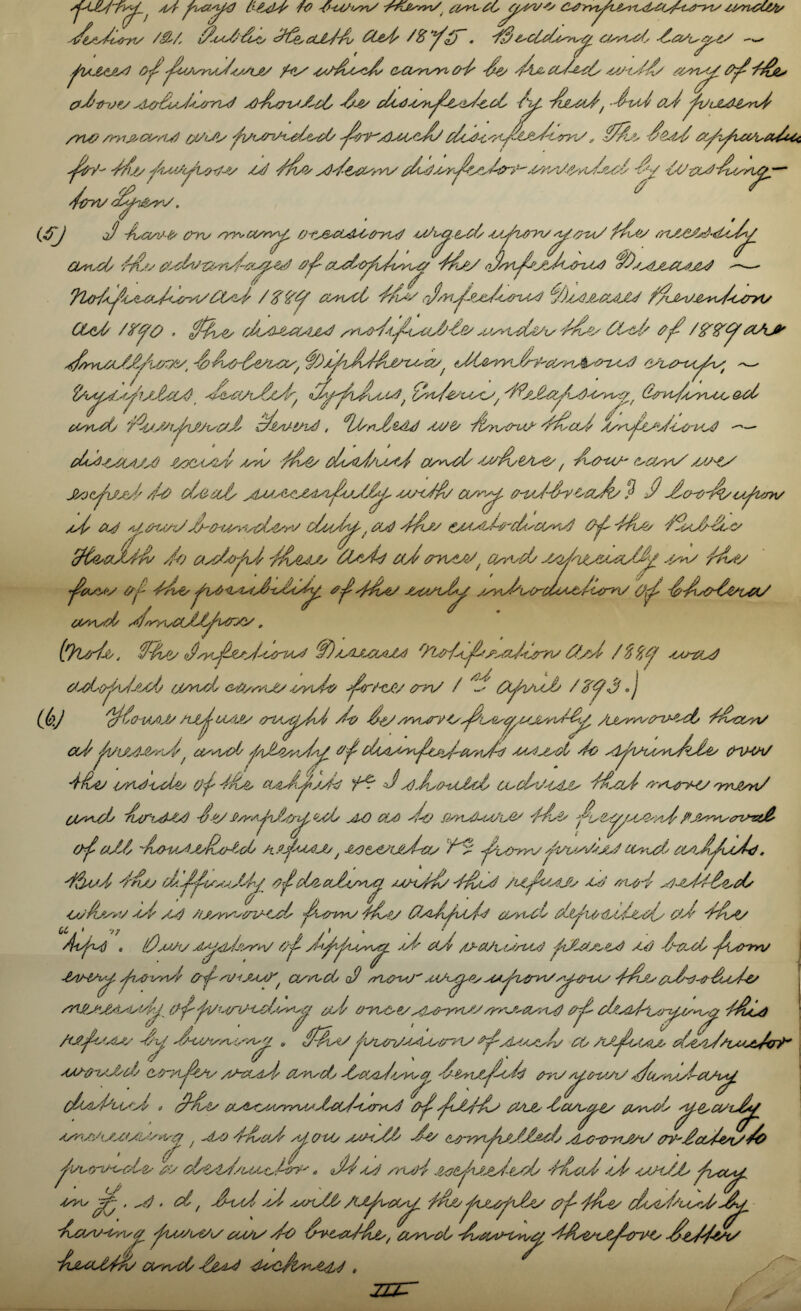 filthy, it ... best to burn them, and give compensation under
Section 181. Public Health Act 1875. Bedding and large —
pieces of furniture for which cannot be placed with any of the
above solutions should be disinfected by heat, but at present
no means are provided for such disinfection. The best apparatus
for the purpose is the steam disinfector invented by Washing-
ton Lyon.
(5) I have on many occasions urged upon you the necessity
and the advantages of adopting the Infectious Diseases —
Notification Act 1889 and the Infectious Diseases Prevention
Act 1890. The diseases notifiable under the Act of 1889 are
Smallpox, Cholera, Diphtheria, Membranous croup, —
Erysipelas, Scarlet, Typhus, Enteric, Relapsing, Continued
and Puerperal Fevers. Unless we know that Infectious —
diseases exist in the district and where, how can we
expect to deal successfully with any outbreak? I look upon
it as your bounden duty, as the custodians of the Public
Health to adopt these Acts at once, and especially in the
face of the possibility of the early introduction of Cholera
and Smallpox.
(Note. The Infectious Diseases Notification Act 1889 was
adopted and came into force on 1st April 1893.)
(6) House refuse ought to be more frequently removed than
at present, and plenty of disinfectants used to sprinkle over
the inside of the ashpits &c I should advise that more men
and horses be employed so as to ensure the frequent removal
of all household refuse, excreta &c from privies and ashpits.
But the difficulty of dealing with this refuse is not settled
when it is removed from the Ashpits and deposited at the
"tips". Our system of tipping it at various places is bad from
every point of view, and I now urge upon you the absolute
necessity of providing at once some means of destroying this
refuse by burning. The provision of such a refuse destructor
would confer vast and lasting benefits on your Sanitary
district. The accumulations of filth are large and daily
increasing, so that you will be compelled sooner or later to
provide a destructor. It is not expected that it will pay
in £. s. d, but it will repay the people of the district by
having purer air to breathe, and having therefore better
health and less sickness.
III